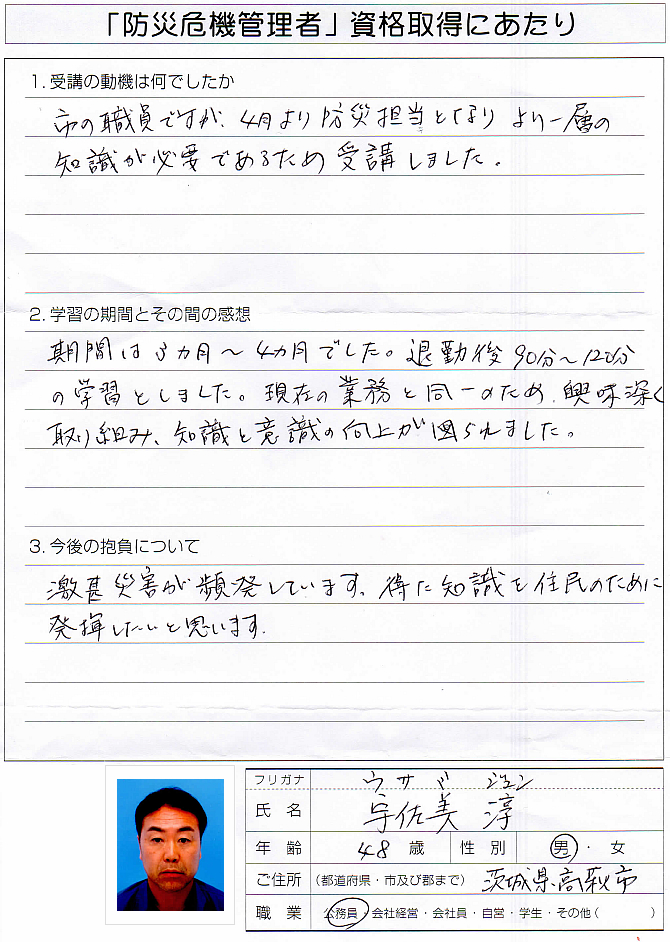 「防災危機管理者」資格取得にあたり
1. 受講の動機は何でしたか
市の職員ですが、4月より防災担当となり より一層の
知識が必要であるため受講しました。
2. 学習の期間とその間の感想
期間は3ヵ月〜4ヵ月でした。退勤後90分〜120分
の学習としました。現在の業務と同一のため、興味深く
取り組み、知識と意識の向上が図られました。
3. 今後の抱負について
激甚災害が頻発しています。得た知識を住民のために
発揮したいと思います。
フリガナ ウサミ ジュン
氏 名 宇佐美 淳
年 齢 48 歳 性 別 男 ・ 女
ご住所 (都道府県・市及び郡まで) 茨城県高萩市
職 業 公務員・会社経営・会社員・自営・学生・その他( )